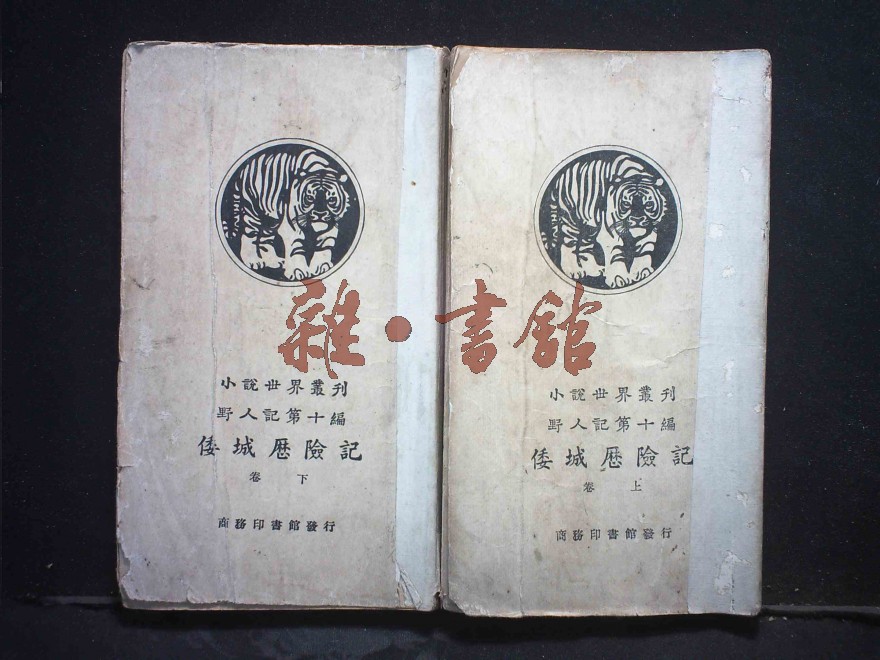 雜·書館
小說世界叢刊
野人記第十編
倭城歷險記
卷 下
商務印書館發行
小說世界叢刊
野人記第十編
倭城歷險記
卷 上
商務印書館發行